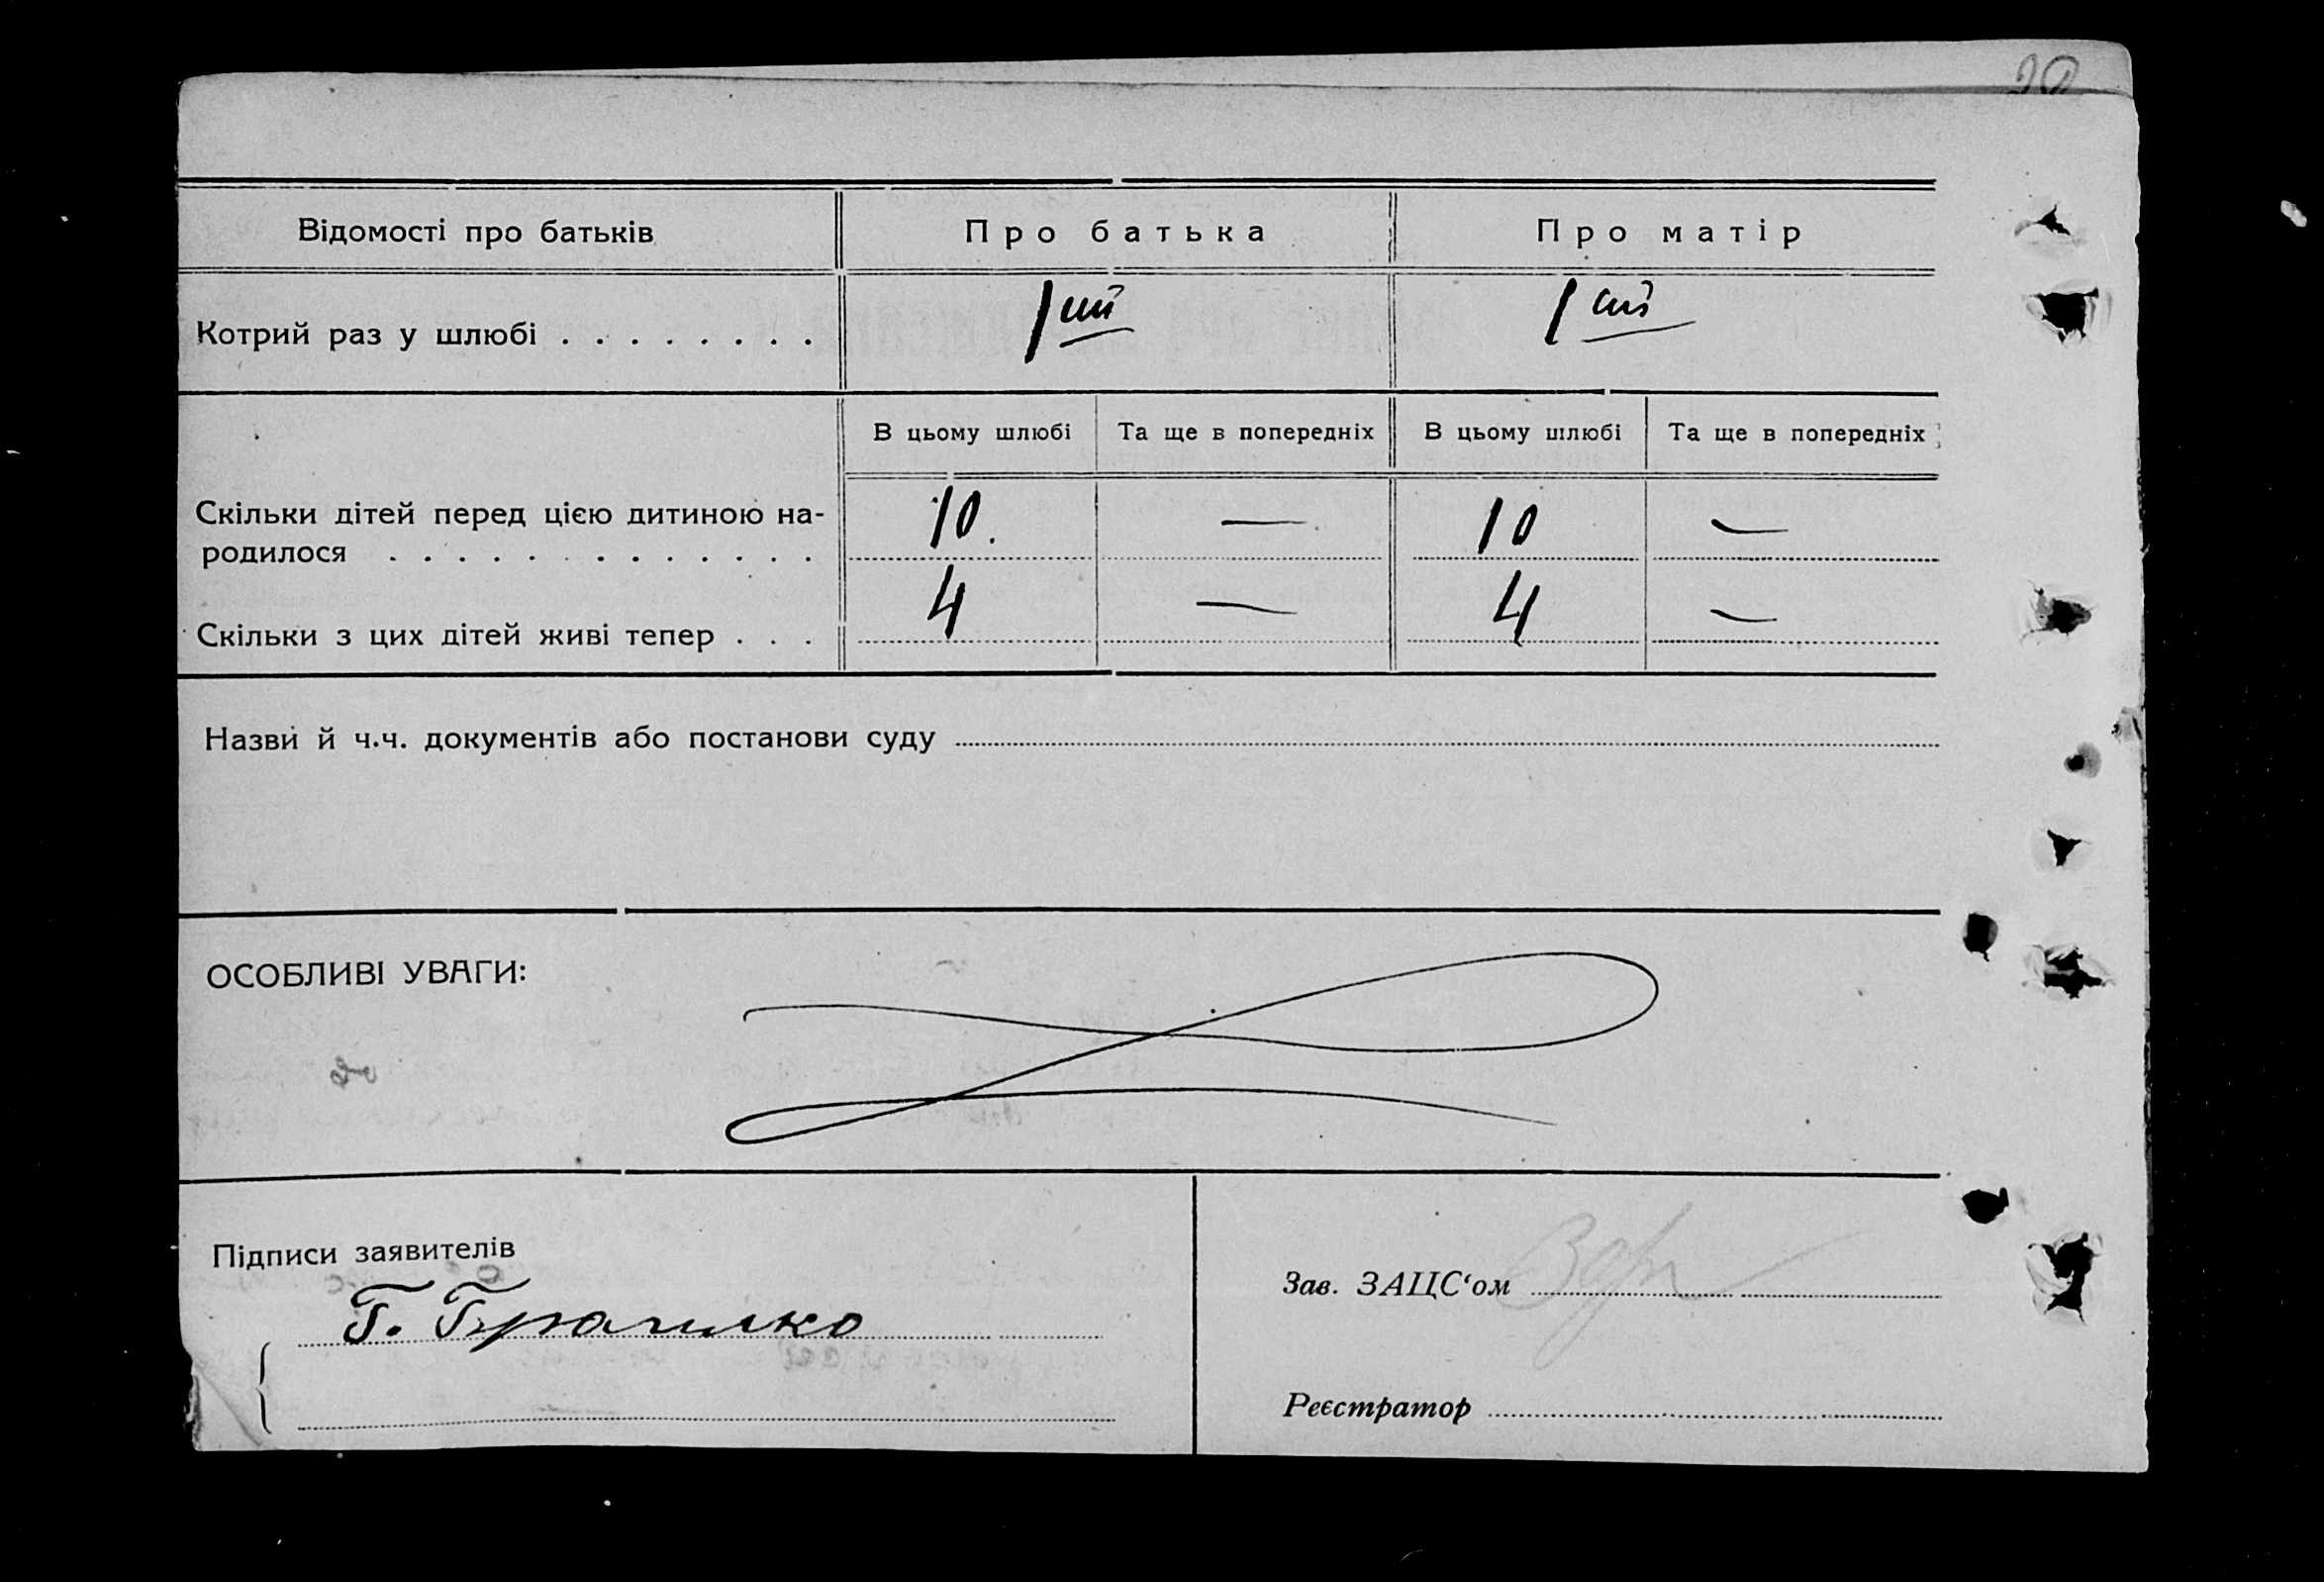 Відомості про батьків
Про батька
Про матір
Котрий раз у шлюбі . . . . . . . .
1ший
1ший
В цьому шлюбі
Та ще в попередніх
В цьому шлюбі
Та ще в попередніх
Скільки дітей перед цією дитиною на-
родилося . . . . . . . . . . . . .
10.
—
10
—
Скільки з цих дітей живі тепер . . .
4
—
4
—
Назви й ч.ч. документів або постанови суду
ОСОБЛИВІ УВАГИ:
Підписи заявителів
Г.
Зав. ЗАЦС‘ом
Реєстратор